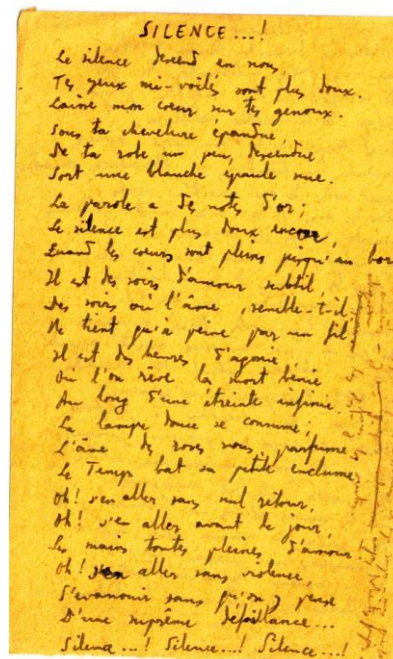 SILENCE...!
Le silence descend en nous,
Tes yeux mi-voilés sont plus doux.
Laisse mon coeur sur tes genoux.
Sous ta chevelure épandue
De ta robe un peu, descendue
Sort une blanche épaule nue.
La parole a des notes d'or;
Le silence est plus doux encor,
Quand les coeurs sont pleins jusqu'au bor
Il est des soirs d'amour subtil,
Des soirs où l'âme, semble-t-il,
Ne tient qu'à peine par un fil,
Il est des heures d'agonie
Où l'on rêve la mort bénie
Au long d'une étreinte infinie.
La lampe douce se consume;
L'âme des roses nous parfume
Le Temps bat sa petite enclume.
Oh! s'en aller sans nul retour,
Oh! s'en aller avant le jour,
Les mains toutes pleines d'amour!
Oh! s'en aller sans violence,
S'évanouir sans qu'on y pense
D'une suprême défaillance...
Silence...! Silence...! Silence...!